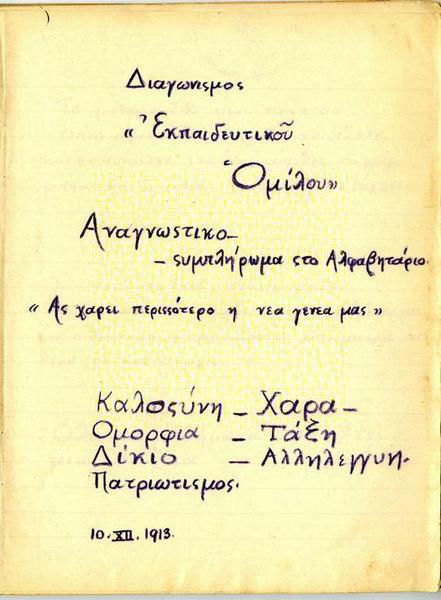 Διαγωνισμος
« Ἐκπαιδευτικοῦ
Ὁμίλου»
Αναγνωστικο –
– συμπλήρωμα στο Αλφαβητάριο.
« Ας χαρει περισσότερο η νεα γενεα μας »
Καλοσύνη – Χαρα –
Ομορφια – Τάξη
Δίκιο – Αλληλεγγυη.
Πατριωτισμος.
10. XII. 1913.